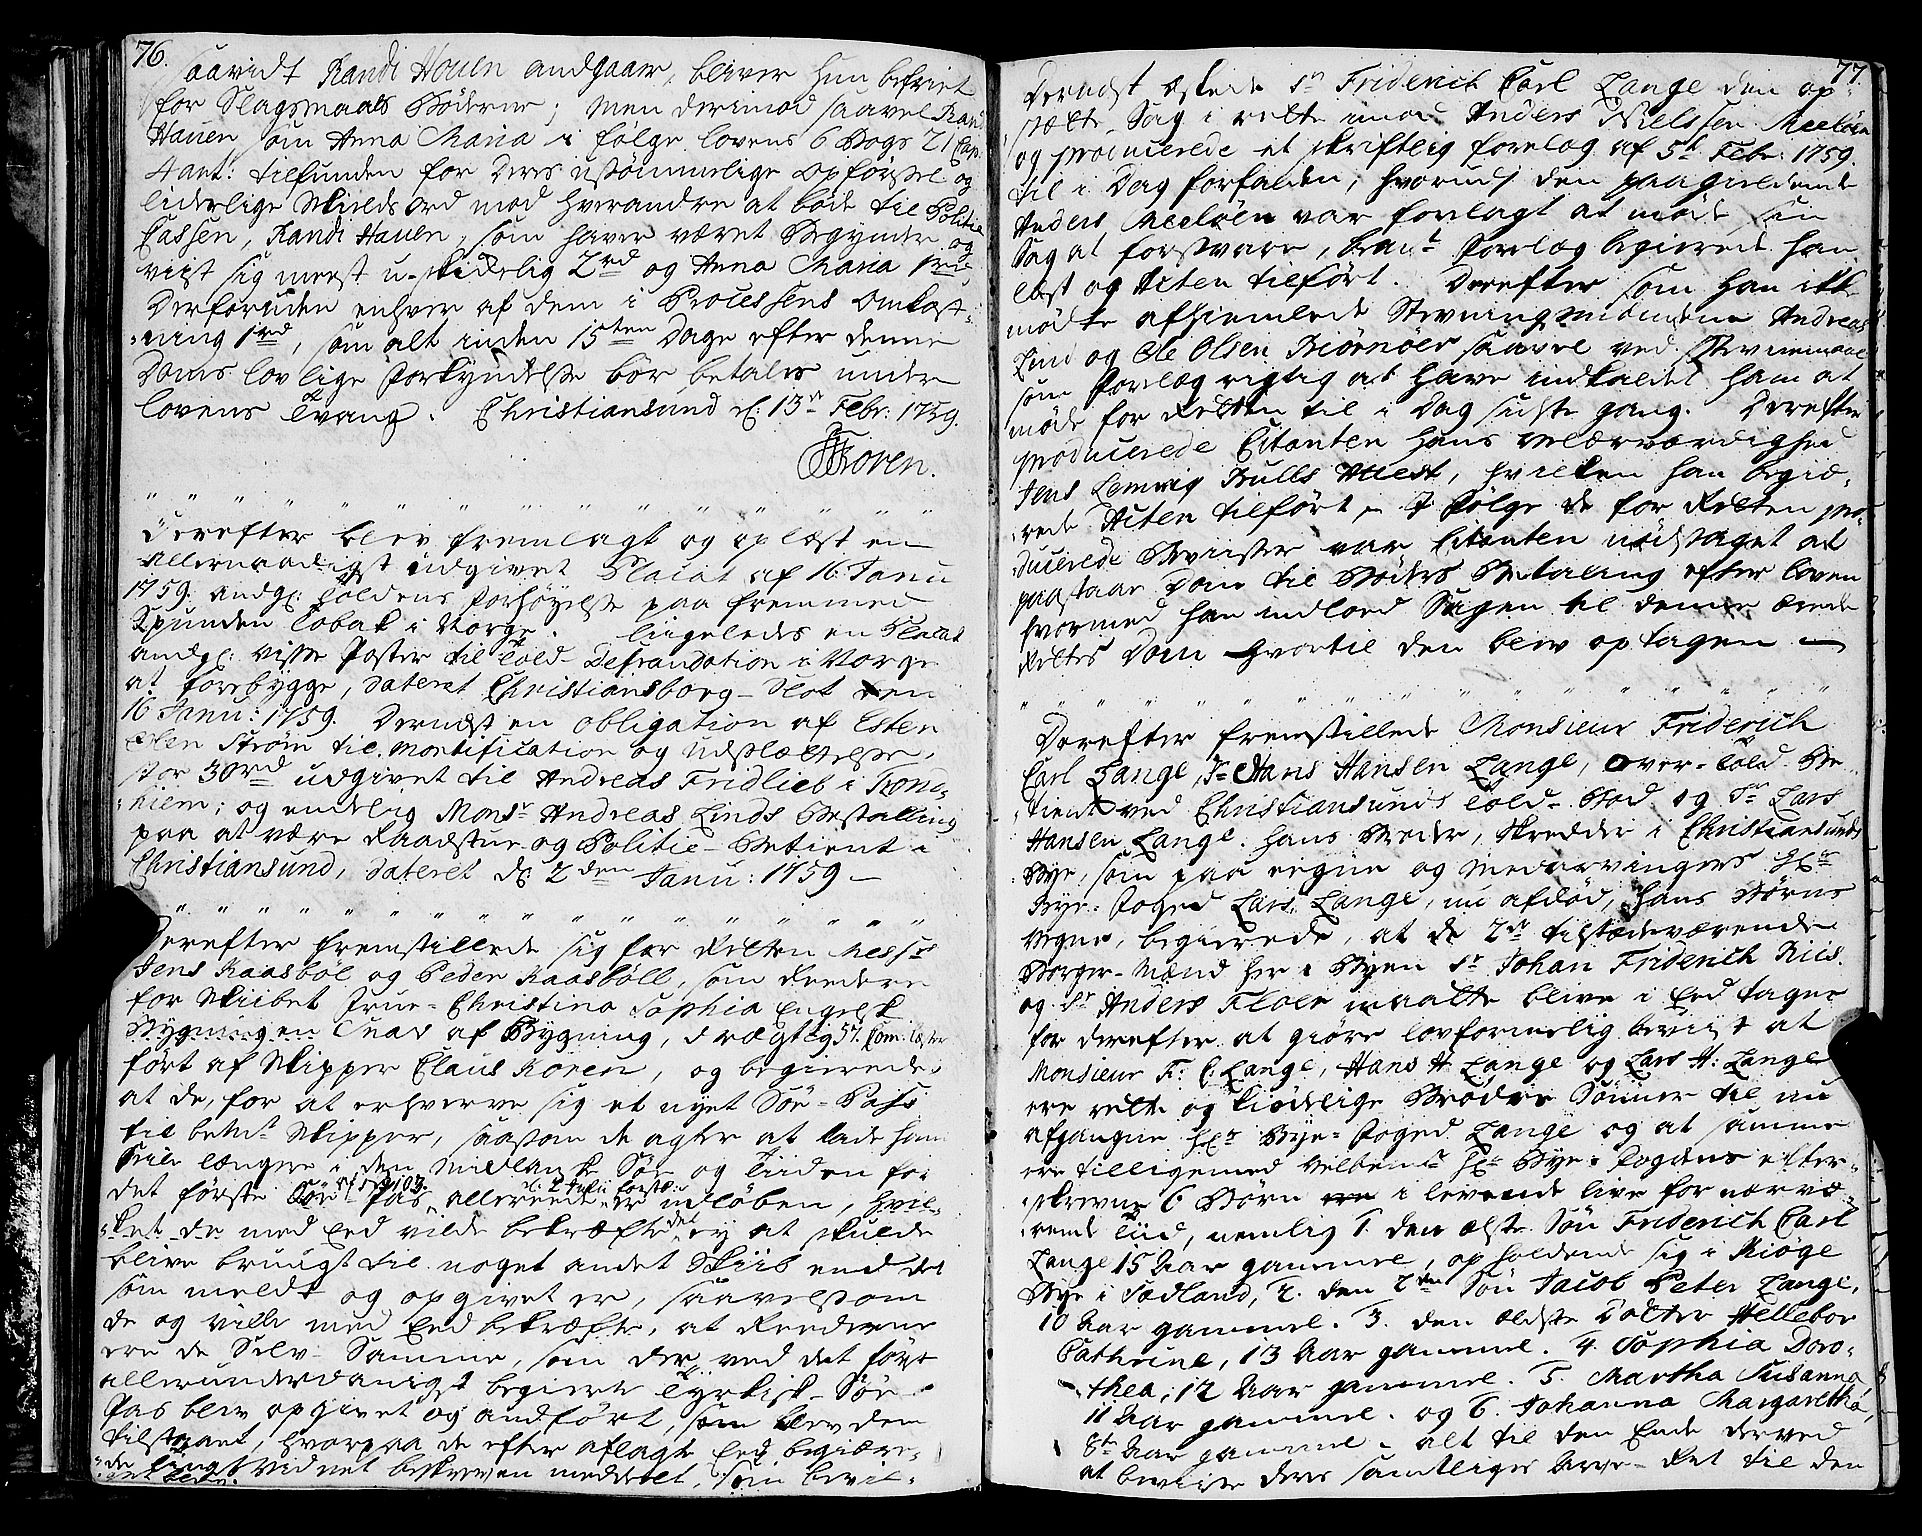 76.
saavidt Randi Houen andgaaer, bliver hun befriet
for Slagsmaals Bøderne; Men derimod saavel Randi
Hauen som Anna Maria i følge lovens 6 Bogs 21 Cap:
4 art: tilfunden for Deris usømmelige opførsel og
liderlige Skields ord mod hverandre at bøde til Politie
Cassen, Randi Hauen, som haver været Begynder og
viist sig meest u-skikkelig 2 rd og Anna Maria 1 rd
Desforuden enhver af dem i Processens Omkost-
ning 1 rd, som alt inden 15ten Dage efter denne
Doms lovlige Forkyndelse bør betales under
lovens Tvang. Christiansund d: 13n Febr: 1759.
Koren.
Derefter blev fremlagt og oplæst en
Allernaadigst udgivet Placat af 16 Janu
1759. andg: Toldens Forhøyelse paa fremmed
Spunden Tobak i Norge. liigeledes en Placat
andg: visse Poster til Told-Defraudation i Norge
at forebygge, dateret Christiansborg-Slot den
16 Janu: 1759. Dernæst en obligation af Esten
Olsen Strøm til Mortification og Udslættelse,
stor 30 rd udgivet til Andreas Fridlieb i Trond-
hiem; og endelig Monsr Andreas Linds Bestalling
paa at være Raadstue- og Politie-Betient i
Christiansund, dateret d: 2den Janu: 1759 —
Derefter fremstillede sig for Retten Messrs
Jens Kaasbøl og Peder Kaasbøll, som Reedere
for Skibet Frue-Christina Sophia Engelsk
Bygningen Snau af Bygning, drægtig 57 Com: læster
ført af Skipper Claus Koren, og begierede
at de, for at erhverve sig et nyet Søe-Pass
til bemte Skipper, saasom de agter at lade ham
seile længere i den Middelandske Søe og Tiiden for
det første Søe-Pas allereede er udløben, hvil-
ket de med Eed vilde bekræfte, det ey at skulde
blive brugt til noget andet Skiib end det
som meldt og opgivet er, saavelsom
de og ville med Eed bekræfte, at Reederne
ere de Selv-Samme, som der ved det først
allerunderdanigst begierte Tyrkisk-Søe-
Pas blev opgivet og andført, som blev dem
tilstaaet, hvorpaa de efter aflagte Eed begiære-
de Tings-Vidnet beskreven meddeelt, som bevil-
77.
Dernæst æskede Sr Friderich Carl Lange den op-
satte Sag i rette imod Anders Nielssen Meeløen
og producerede et skriftlig forelæg af 5te Febr: 1759.
til i Dag forfalden, hvorved den paagieldende
Anders Meeløen var forelagt at møde sin
Sag at forsvare, bemte forelæg begierede han
læst og Acten tilført. Derefter som han ikke
mødte afhiemlede Stevningsmændene Andreas
Lind og Ole Olsen Biørnøer saavel ved Stevnemaal
som forelæg rigtig at have indkaldet ham at
møde for Retten til i Dag sidste gang. Derefter
producerede Citanten Hans Velærværdighed
Jens Lemvig Bulls Attest, hvilken han begiæ-
rede Acten tilført, - I følge de for Retten pro-
ducerede Beviiser var Citanten nødsaget at
paastaae Dom til Bøders Betaling efter loven
hvormed han indlod Sagen til denne ærede
Rettes Dom hvortil den blev optagen —
Derefter fremstillede Monsieur Friderich
Carl Lange, Sr Hans Hansen Lange, over-Told-Be-
tient ved Christiansunds Told-Stæd og Sr Lars
Hansen Lange. hans Broder, Skredder i Christiansunds
Bye, som paa eegne og Medarvingers Hr
Bye-Foged Lars Lange, nu afdød, hans Børns
Vegne, begierede, at de 2de tilstædeværende
Borger-Mænd her i Byen Sr Johan Friderich Riis.
og Sr Anders Floer maatte blive i Eed tagne
for derefter at giøre lovformelig beviist at
Monsieur F: C: Lange, Hans H Lange og Lars H: Lange
ere rette og kiødelige Brødre Sønner til nu
afgangne Hr Bye-Foged Lange og at samme
ere tilligemed Velbemte Hr Bye-Fogdens efter-
skrevne 6 Børn ere i levende live for nærvæ-
rende Tiid, nemlig 1. den ælste Søn Friderich Carl
Lange 15 Aar gammel, opholdende sig i Kiøge
Bye i Siælland, 2. den 2den Søn Jacob Peter Lange,
10 Aar gammel. 3. den ældste Dotter Hellebor
Cathrine, 13 Aar gammel. 4. Sophia Doro-
thea, 12 Aar gammel. 5. Martha Susanna
11 Aar gammel. og 6. Johanna Margaretha,
8te Aar gammel - alt til den Ende derved
at beviise deres samtliges Arve-Ret til den